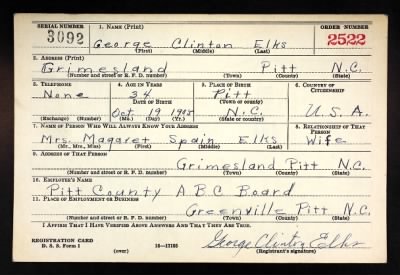 SERIAL NUMBER 1. NAME (Print) ORDER NUMBER
3092 George Clinton Elks 2522
(First) (Middle) (Last)
2. ADDRESS (Print)
Grimesland Pitt N.C.
(Number and street or R. F. D. number) (Town) (County) (State)
3. TELEPHONE 4. AGE IN YEARS 5. PLACE OF BIRTH 6. COUNTRY OF
CITIZENSHIP
None 34 Pitt
DATE OF BIRTH (Town or county)
Oct 19 1905 N.C. U.S.A.
(Exchange) (Number) (Mo.) (Day) (Yr.) (State or country)
7. NAME OF PERSON WHO WILL ALWAYS KNOW YOUR ADDRESS 8. RELATIONSHIP OF THAT
PERSON
Mrs. Magaret Spain Elks Wife
(Mr., Mrs., Miss) (First) (Middle) (Last)
9. ADDRESS OF THAT PERSON
Grimesland Pitt N.C.
(Number and street or R. F. D. number) (Town) (County) (State)
10. EMPLOYER'S NAME
Pitt County ABC Board
11. PLACE OF EMPLOYMENT OR BUSINESS
Greenville Pitt N.C.
(Number and street or R. F. D. number) (Town) (County) (State)
I AFFIRM THAT I HAVE VERIFIED ABOVE ANSWERS AND THAT THEY ARE TRUE.
REGISTRATION CARD
D. S. S. Form 1 16-17105 George Clinton Elks
(over) (Registrant's signature)